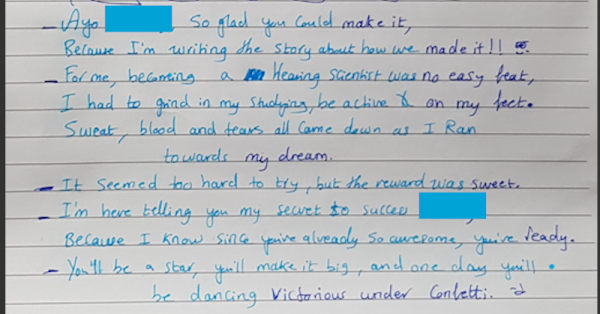 - Ayo , So glad you could make it,
Because I'm writing the story about how we made it!!
- For me, becoming a Hearing scientist was no easy feat,
I had to grind in my studying, be active & on my feet.
Sweat, blood and tears all came down as I Ran
towards my dream.
- It seemed too hard to try, but the reward was sweet.
- I'm here telling you my secret to succes ,
Because I know since you're already so awesome, you're ready.
- You'll be a star, you'll make it big, and one day you'll
be dancing Victorious under Confetti. :)